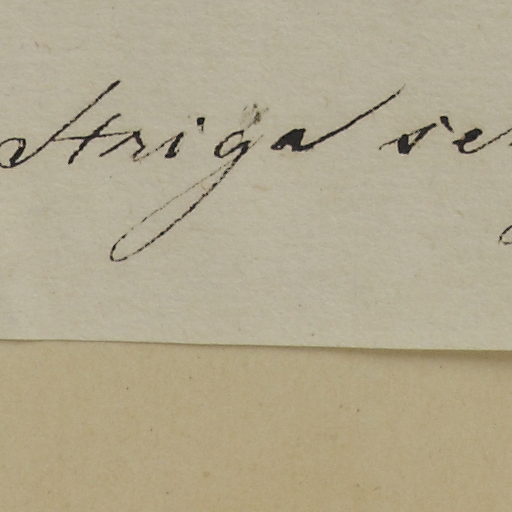 Striga se